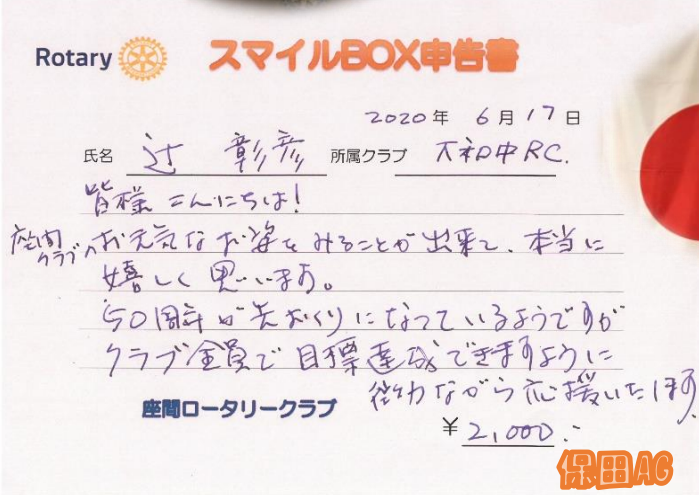 Rotary
スマイルBOX申告書
2020年 6月17日
氏名 辻 彰彦 所属クラブ 大和中RC.
皆様こんにちは!
座間クラブの
お元気なお姿をみることが出来て、本当に
嬉しく思います。
50周年が先おくりになっているようですが
クラブ全員で目標達成できますように
微力ながら応援いたします
座間ロータリークラブ
¥2,000.-
保田AG